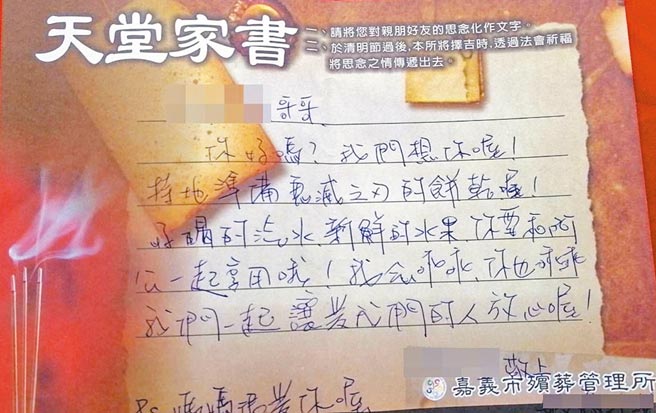 天堂家書
一、請將您對親朋好友的思念化作文字。
二、於清明節過後，本所將擇吉時，透過法會祈福
將思念之情傳遞出去。
哥哥
你好嗎？我們想你喔！
特地準備鬼滅之刃的餅乾喔！
好喝的汽水、新鮮的水果、你要和阿
公一起享用哦！我會乖乖、你也乖乖
我們一起讓愛我們的人放心喔！
敬上
嘉義市殯葬管理所
Ps 媽媽很愛你喔